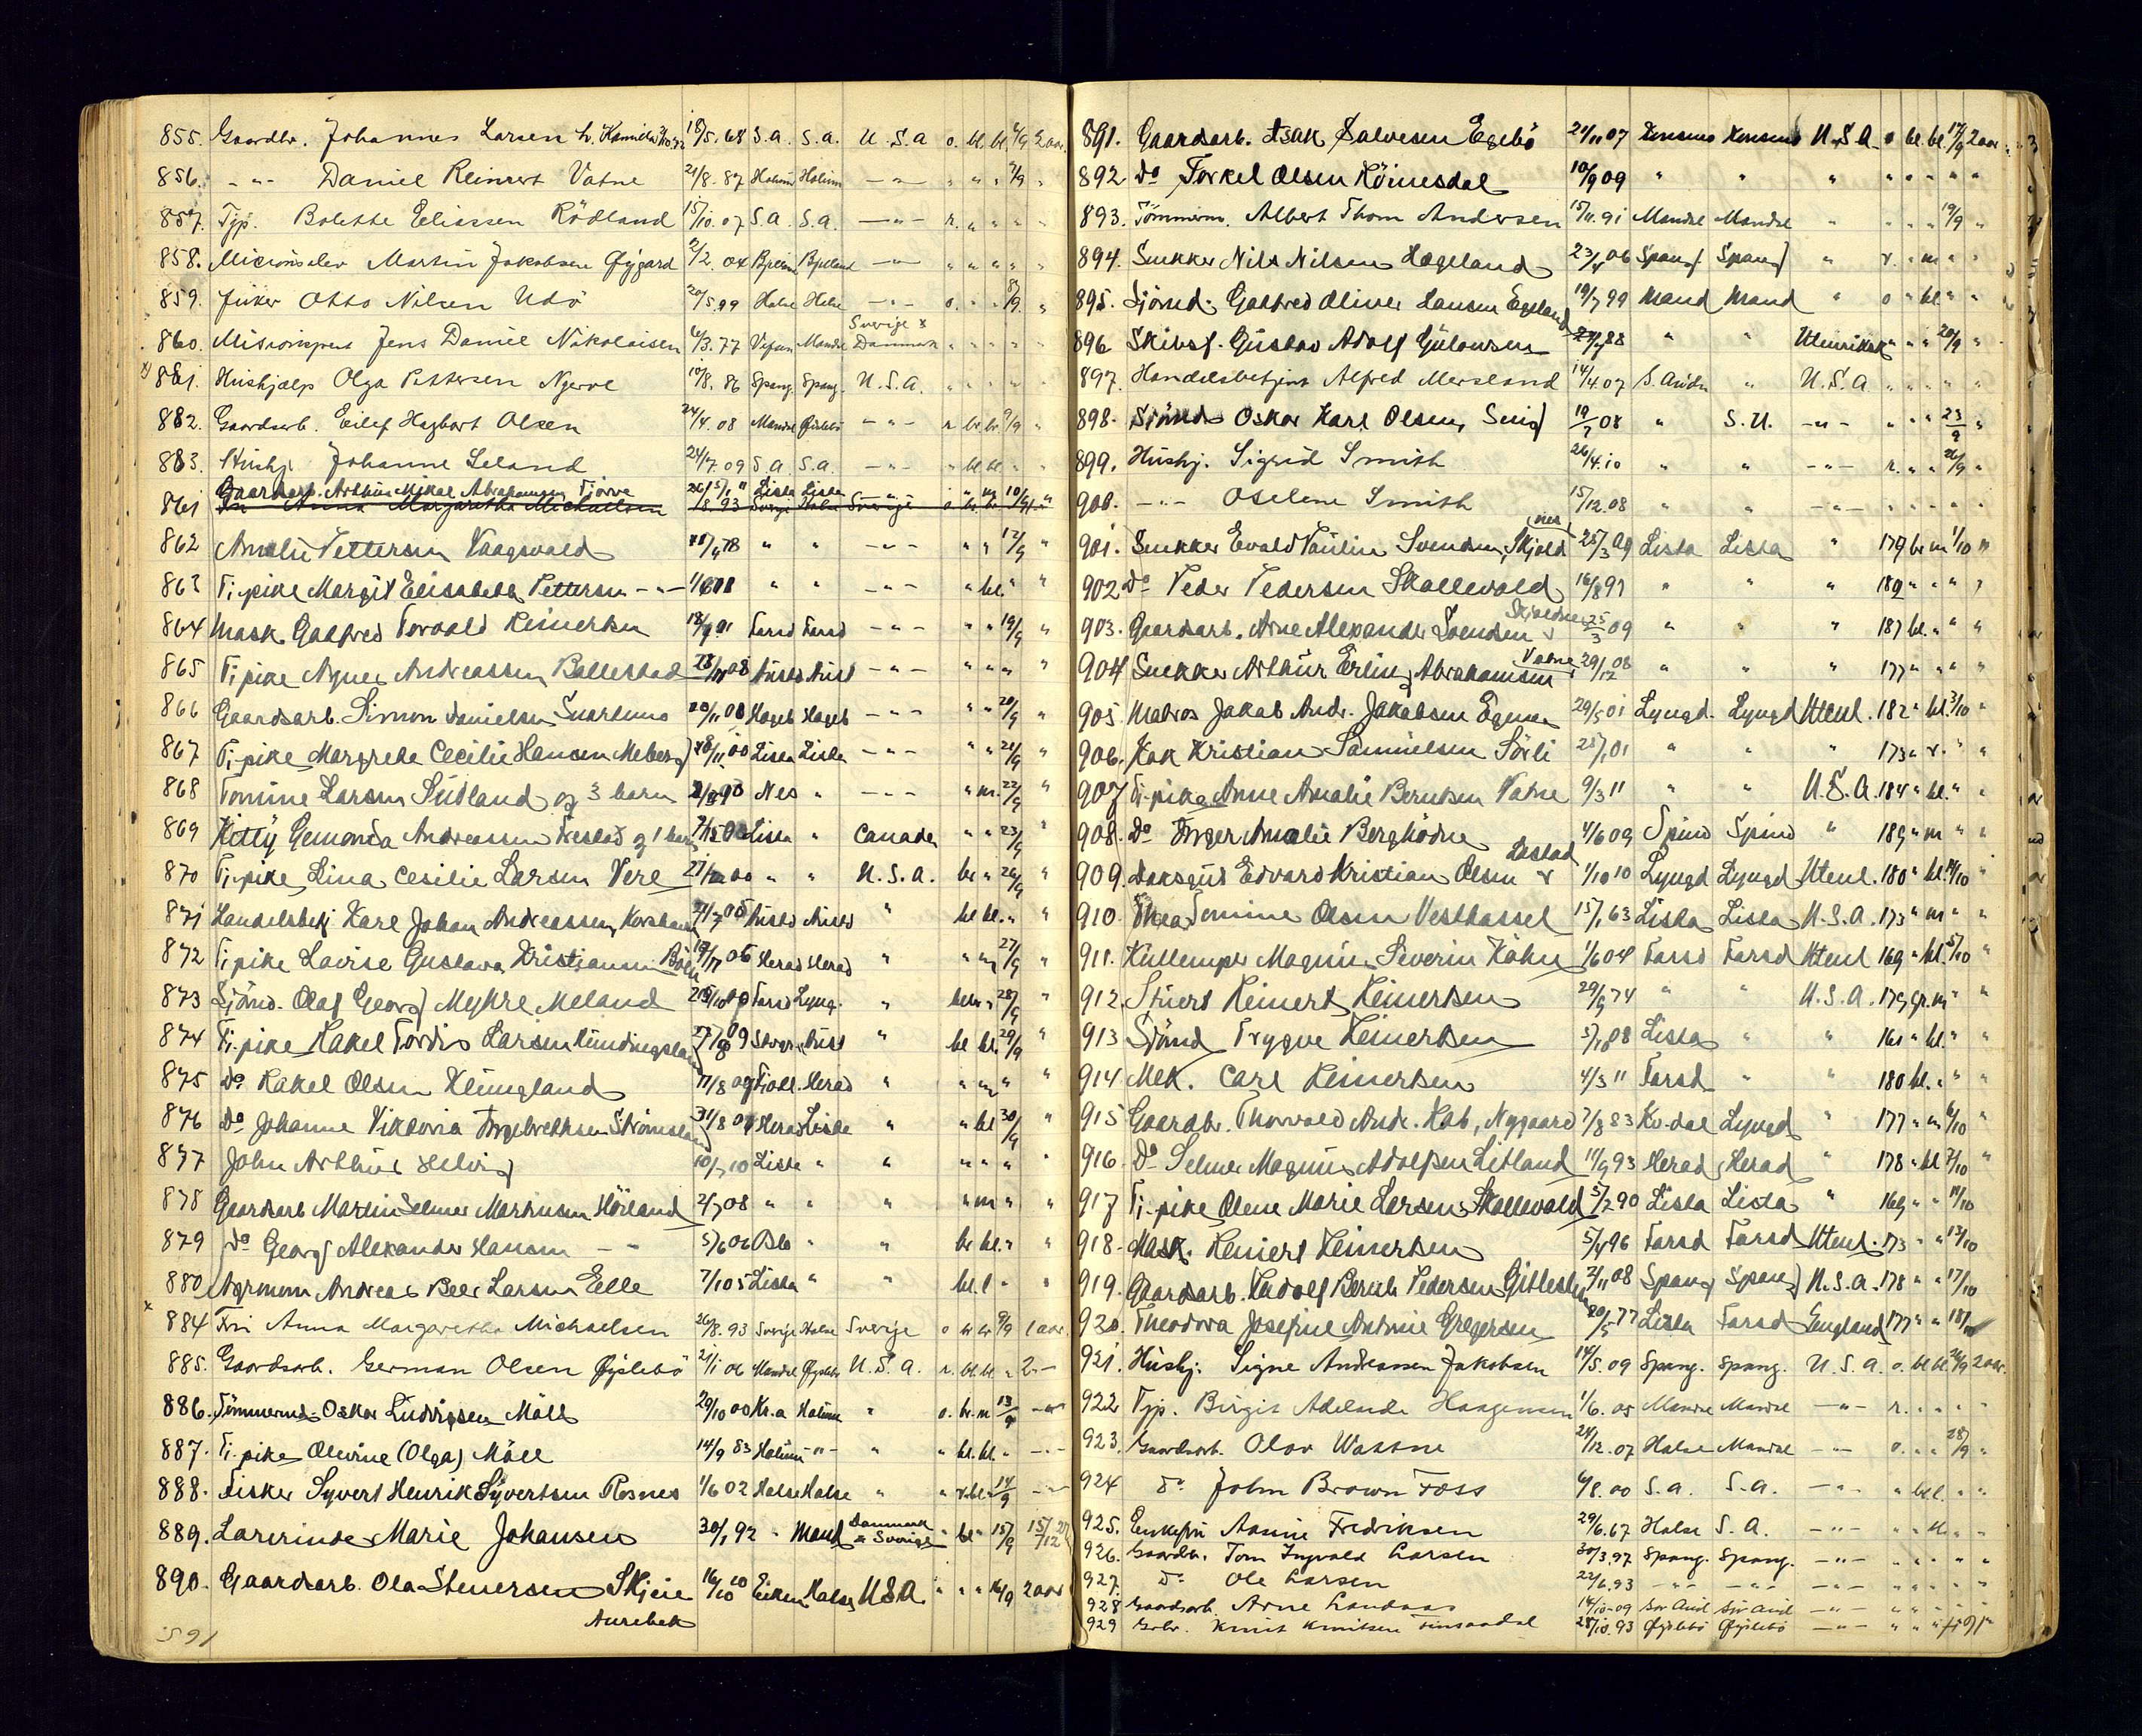 855. Gaardbr. Johannes Larsen h. Kamilla 18/5.68 S.a. S.a. U.S.a o. bl. bl. 2 aar.
856. -"- Daniel Reinert Vatne 21/8.87 Holum Holum -"- " " " 7/9 "
857. Tjp. Bolette Eliassen Rödland 15/10.07 S.a. S.a. -"- r. " " " "
858. Martin Jakobsen Øygard 2/2.04 Bjelland Bjelland -"- " " " " "
859. Fisker Otto Nilsen Udö 20/5.99 Halse Halse -"- o. " " 8/9 "
Sverige &
860. Jens Daniel Nikolaisen 6/3.77 Mandal Danmark " " " " "
861. Hushjælp Olga Pettersen Njerve 10/8.86 Spang. Spang. U.S.A. " " " " "
882. Gaardsarb. Eilef Hagbart Olsen 24/4.08 Mandal Øislebö -"- r br. br. 9/9 "
883. Hushj. Johanne Leland 24/7.09 S.a. S.a. -"- " bl bl. " "
Gaardsarb. Arthur Mikal Abrahamsen Tjörve Lista Lista " " m 10/9 "
861 Fru Anna Margaretha Michaelsen /8 93 Sverige Halse Sverige
862 Amalie Pettersen Vaagsvold 78 " " -"- " " 12/9 "
863 Tj.pike Margit Elisabeth Pettersen -"- " " -"- " bl. " "
864 Mask. Galfred Torvald Reinertsen 18/9 01 Farsd Farsd -"- " " 19/9 "
865 Tj.pike Agnes Andreassen Ballestad 08 Austd Aust -"- " " " "
866 Gaardsarb. Simon Danielsen Snartemo 20/11 08 Hægeb Hægeb -"- " " 20/9 "
867 Tj.pike Margrethe Cecilie Hansen Meberg 28/11 00 Lista Lista -"- " " 21/9 "
868 Tomine Larsen Sudland og 3 barn Nes " -"- " m. 22/9 "
869 Kitty Andreassen og 1 barn Lista " Canada " " 23/9 "
870 Tj.pike Lina Cesilie Larsen Vere 00 " " U.S.A. br " 26/9 "
871 Handelsbetj. Karl Johan Andreassen Korshavn 05 Austd Austd " bl bl. " "
872 Tj.pike Lovise Gustava Kristiansen 06 Herad Herad " " m 27/9 "
873 Sjömd. Olaf Georg Myhre Meland Farsd Lyng. " " 28/9 "
874 Tj.pike Rakel Tordis Larsen 09 Aust " bl bl. 29/9 "
875 Do Rakel Olsen Klungland 11/8 09 Fjotl. Herad " " m " "
876 Do Johanne Viktoria Ingebrethsen Strömsland 31/8 07 Herad Lista " " bl 30/9 "
877 John Arthur Helvig 10/7 10 Lista " " " " " "
878 Gaardsarb Martin Selmer Martinsen Hörland 2/7 08 " " " " m " "
879 Do Georg Alexander Hansen -"- 5/6 06 Oslo " " br bl. " "
880 Agrmnn Andreas Beer Larsen Elle 7/1 05 Lista " " bl. l " "
884 Fru Anna Margaretha Michaelsen 26/8.93 Sverige Halse Sverige o br br 9/9 1 aar.
885. Gaardsarb. German Olsen Øyslebö 21/1 06 Mandal Øyslebö U.S.A. r. bl. bl " 2.-
886. Tömmermd. Oskar Ludvigsen Möll 29/10 00 Kr.a Holum " o. br. m 13/9 -"-
887. Tj.pike Olevine (Olga) Möll 14/9 83 Holum -"- " " bl. bl. " -"-
888. Fisker Syvert Henrik Syvertsen Rosnes 1/6 02 Halse Halse " " " 14/9 -"-
889. Lærerinde Marie Johansen 30/1 92 " Mand Danmark & Sverige " bl " 15/9 15/12
890. Gaardsarb. Ola Stenersen Skjeie 16/10 10 Eiken Halse USA. " " " 16/9 2 aar
Aurebek
891. Gaardsarb. Isak Salvesen Egebö 21/11 07 Konsmo Konsmo U.S.A. o bl. bl. 17/9 2 aar
892 Do Torkel Olsen Römesdal 10/9 09 " " " " " " " "
893. Tömmerm. Albert Thom Andersen 15/11.91 Mandal Mandal " " " " 19/9 "
894. Snekker Nils Nilsen Hægeland 23/4 06 Spang Spang " r. " m " "
895. Sjömd. Galfred Oliver Hansen Egeland 19/7 99 Mand Mand " o " bl " "
896 Skibsf. Gustav Adolf Gulowsen 88 " " Utenriks " " " 20/9 "
897. Handelsbetjent Alfred Mersland 14/4.07 S. Audn " U.S.A. " " " " "
898. Sjömd Oskar Karl Olsen, Snig 19/7 08 " S.U. -"- " " " 23/9 "
899. Hushj. Sigrid Smith 26/4.10 " " -"- r. " " 26/9 "
900. -"- Oselene Smith 15/12.08 " " -"- " " " " "
901. Snekker Evald Paulin Svendsen, Skjoldnes 25/3 09 Lista Lista " 179 br m 1/10 "
902 Do Peder Pedersen Skollevold 16/8 97 " " " 189 " " " "
903. Gaardsarb. Arne Alexander Svendsen Skjoldnes 25/3 09 " " " 187 bl. " " "
904 Snekker Arthur Erling Abrahamsen Vatne 29/12 08 " " " 177 " " " "
905 Matros Jakob Andr. Jakobsen 29/5 01 Lyngd. Lyngd Utenl. 182 " bl. 3/10 "
906. Kok Kristian Samuelsen Sörli 25/1 01 " " " 173 " r. " "
907 Tj.pike Anne Amalie Berntsen Vatne 9/3 11 " " U.S.A. 184 " bl. " "
908. Do Inger Amalie Berghödne 4/6 09 Spind Spind " 189 " m " "
909. Edvard Kristian Olsen Listad 1/10 10 Lyngd Lyngd Utenl. 180 " bl. 4/10 "
910 Thea Tomine Olsen Vesthassel 15/1 63 Lista Lista U.S.A. 173 " m " "
911. Kullemper Magnus Severin Kahn 1/6 04 Farsd Farsd Utenl 169 " bl. 5/10 "
912 Stuert Reinert Reinertsen 29/9 74 " " U.S.A. 179 gr. m " "
913 Sjömd Trygve Reinertsen 08 Lista " " 161 " bl. " "
914 Mek. Carl Reinertsen 4/3 11 Farsd " " 180 bl. " " "
915 Gaardbr. Thorvald Andr. Kab, Nygaard 7/8 83 Kv.dal Lyngd " 177 " m 6/10 "
916. Do Selmer Magnus Adolfsen Litland 11/9 93 Herad Herad " 178 " bl 7/10 "
917 Tj.pike Olene Marie Larsen Skollevold 5/2 90 Lista Lista " 169 " " 11/10
918. Mask. Reinert Reinertsen 5/4 96 Farsd Farsd Utenl. 173 " " 13/10
919. Gaardsarb. Rudolf Bernth Pedersen Gitlestad 2/11 08 Spang Spang U.S.A. 178 " " 17/10
920. Theodora Josefine Antonie Gregersen 20/5 77 Lista Farsd England 177 " " 18/10
921. Hushj. Signe Andreassen Jakobsen 14/5.09 Spang. Spang. U.S.a. o. bl bl. 26/9 2 aar.
922 Tjp. Birgit Adelaide Haagensen 1/6.05 Mandal Mandal -"- r. " " " "
923. Gaardsarb. Olav Wattne 24/12.07 Halse Mandal -"- o. " " 28/9 "
924 Do John Brown Foss 6/8.00 S.a. S.a. -"- " bl l. " "
925. Enkefru Annie Fredriksen 29/6.67 Halse S.A. -"- " " " "
926. Gaardbr. Tom Ingvald Larsen 30/3.97 Spang. Spang. -"- " " " " "
927. Do Ole Larsen 22/6.93 -"- -"- -"- " " " " "
928 Gaardsarb. Arne Landaas 14/10-09 Sør Aud Sør Aud -"- " " " " "
929 Gbr. Knut Knutsen Finsaadal 28/10.93 Øyslebö Øyslebö -"- " " "